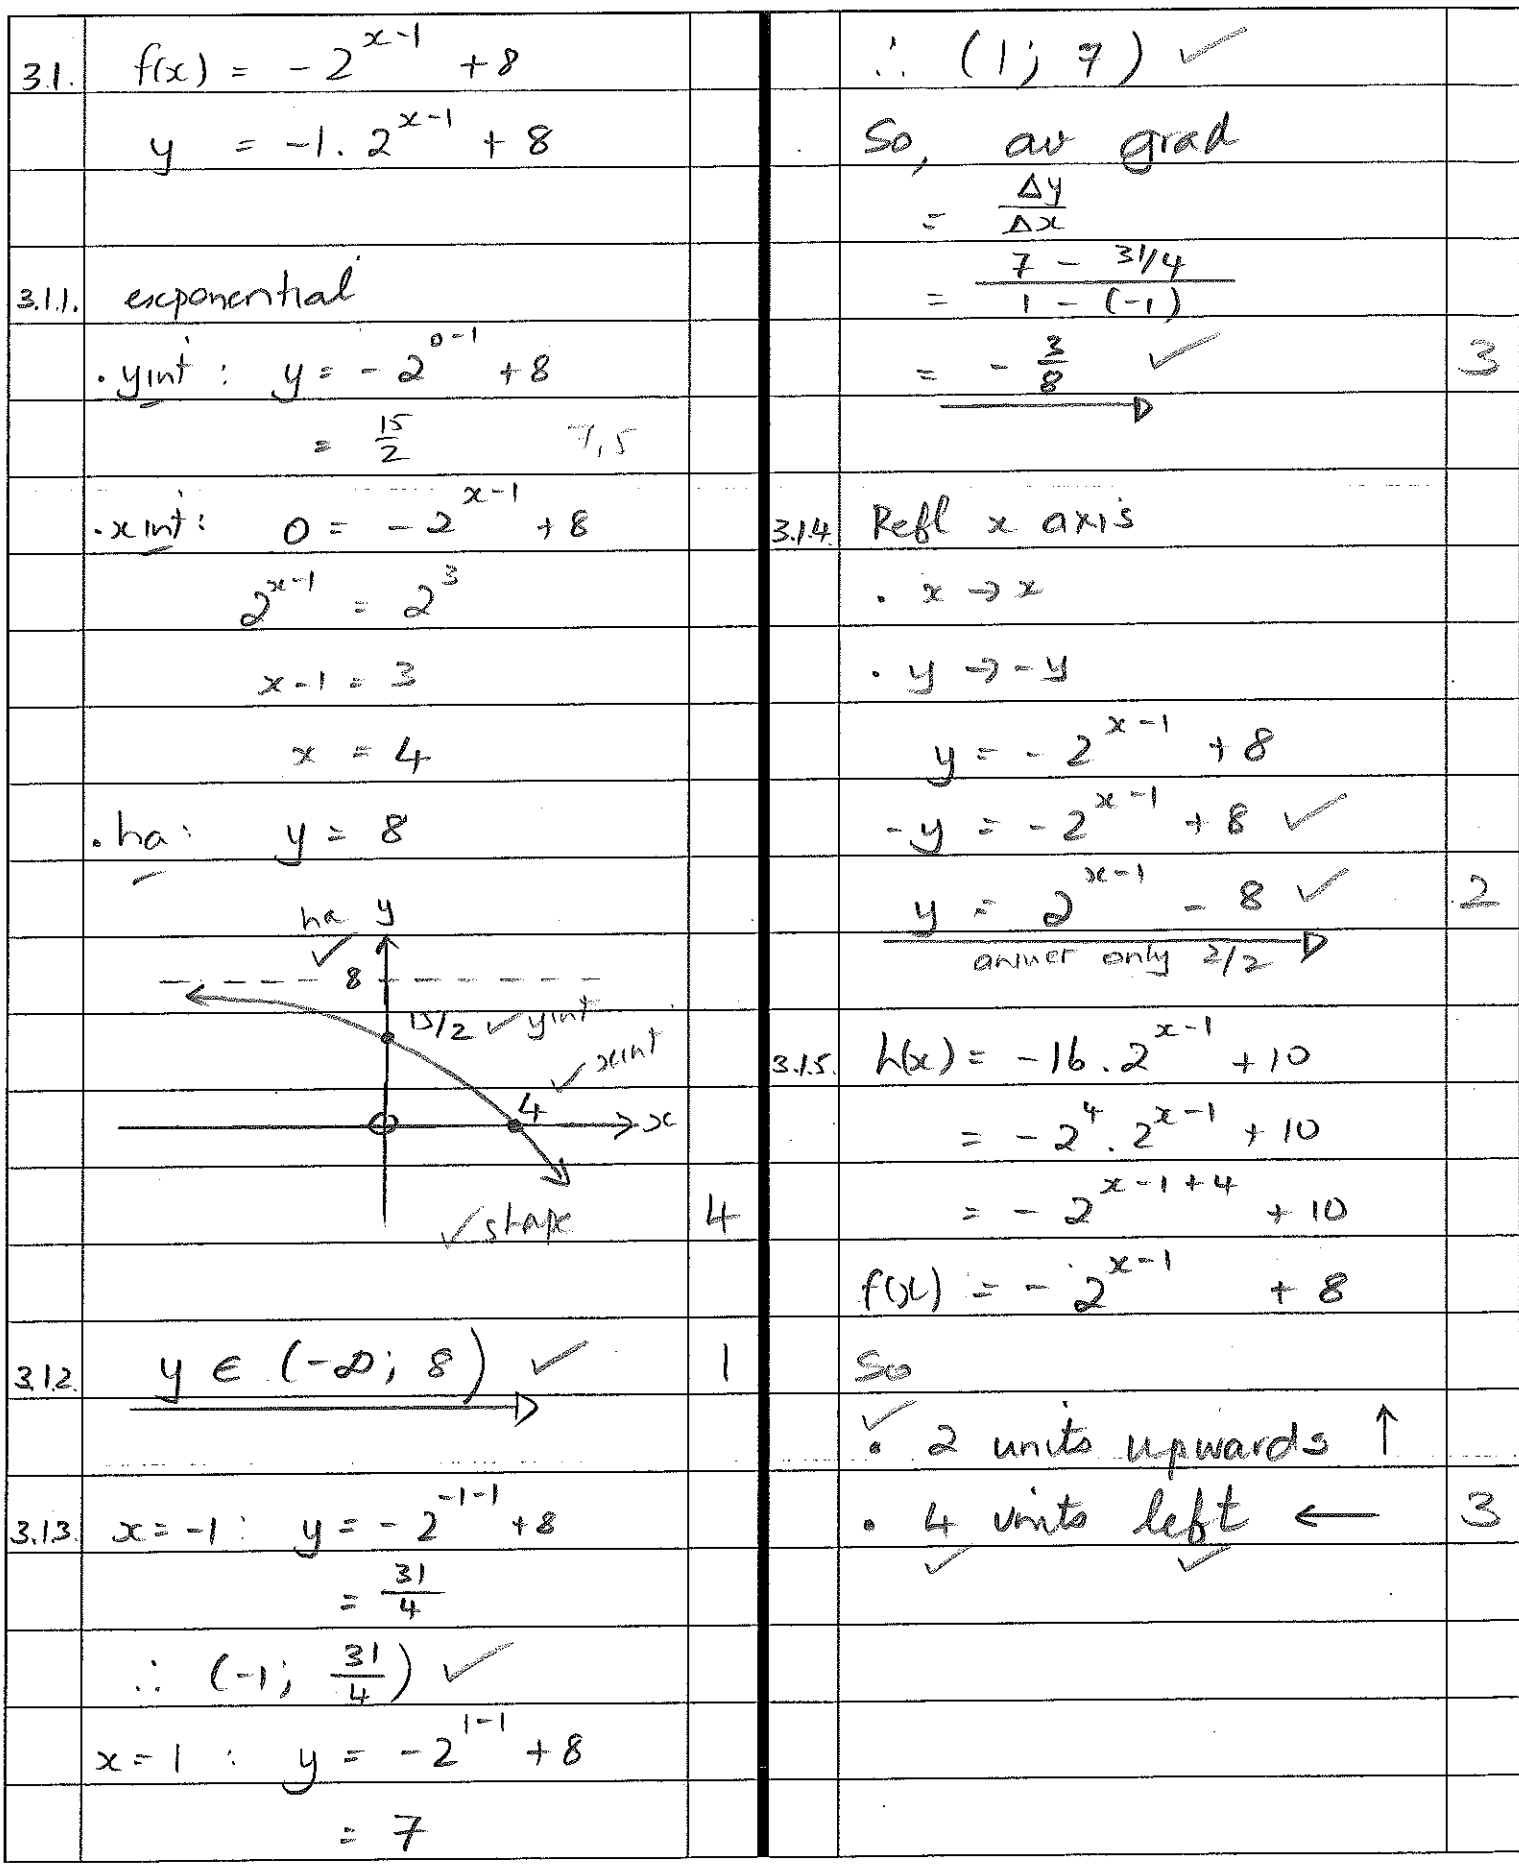 3.1. f(x) = -2^{x-1} + 8
y = -1. 2^{x-1} + 8
3.1.1. exponential
· yint : y = -2^{0-1} + 8
= 15/2 7,5
· xint : 0 = -2^{x-1} + 8
2^{x-1} = 2^3
x-1 = 3
x = 4
· ha : y = 8
ha ✓ y
8
15/2 ✓ yint
✓ xint
4 x
✓ shape 4
3.1.2. y ∈ (-∞; 8) ✓ 1
3.1.3. x = -1 : y = -2^{-1-1} + 8
= 31/4
∴ (-1; 31/4) ✓
x = 1 : y = -2^{1-1} + 8
= 7
∴ (1; 7) ✓
So, av grad
= Δy/Δx
= (7 - 31/4)/(1 - (-1))
= -3/8 ✓ 3
3.1.4. Refl x axis
· x → x
· y → -y
y = -2^{x-1} + 8
-y = -2^{x-1} + 8 ✓
y = 2^{x-1} - 8 ✓ 2
answer only 2/2
3.1.5. h(x) = -16 . 2^{x-1} + 10
= -2^4 . 2^{x-1} + 10
= -2^{x-1+4} + 10
f(x) = -2^{x-1} + 8
So
✓
· 2 units upwards ↑
· 4 units left ← 3
✓ ✓